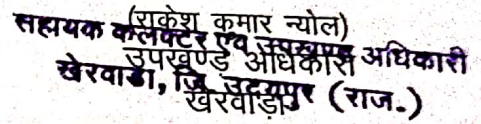 (राकेश कुमार न्योल)
सहायक कलेक्टर एवं उपखण्ड अधिकारी
उपखण्ड अधिकारी
खेरवाडा, जि. उदयपुर (राज.)
खेरवाड़ा